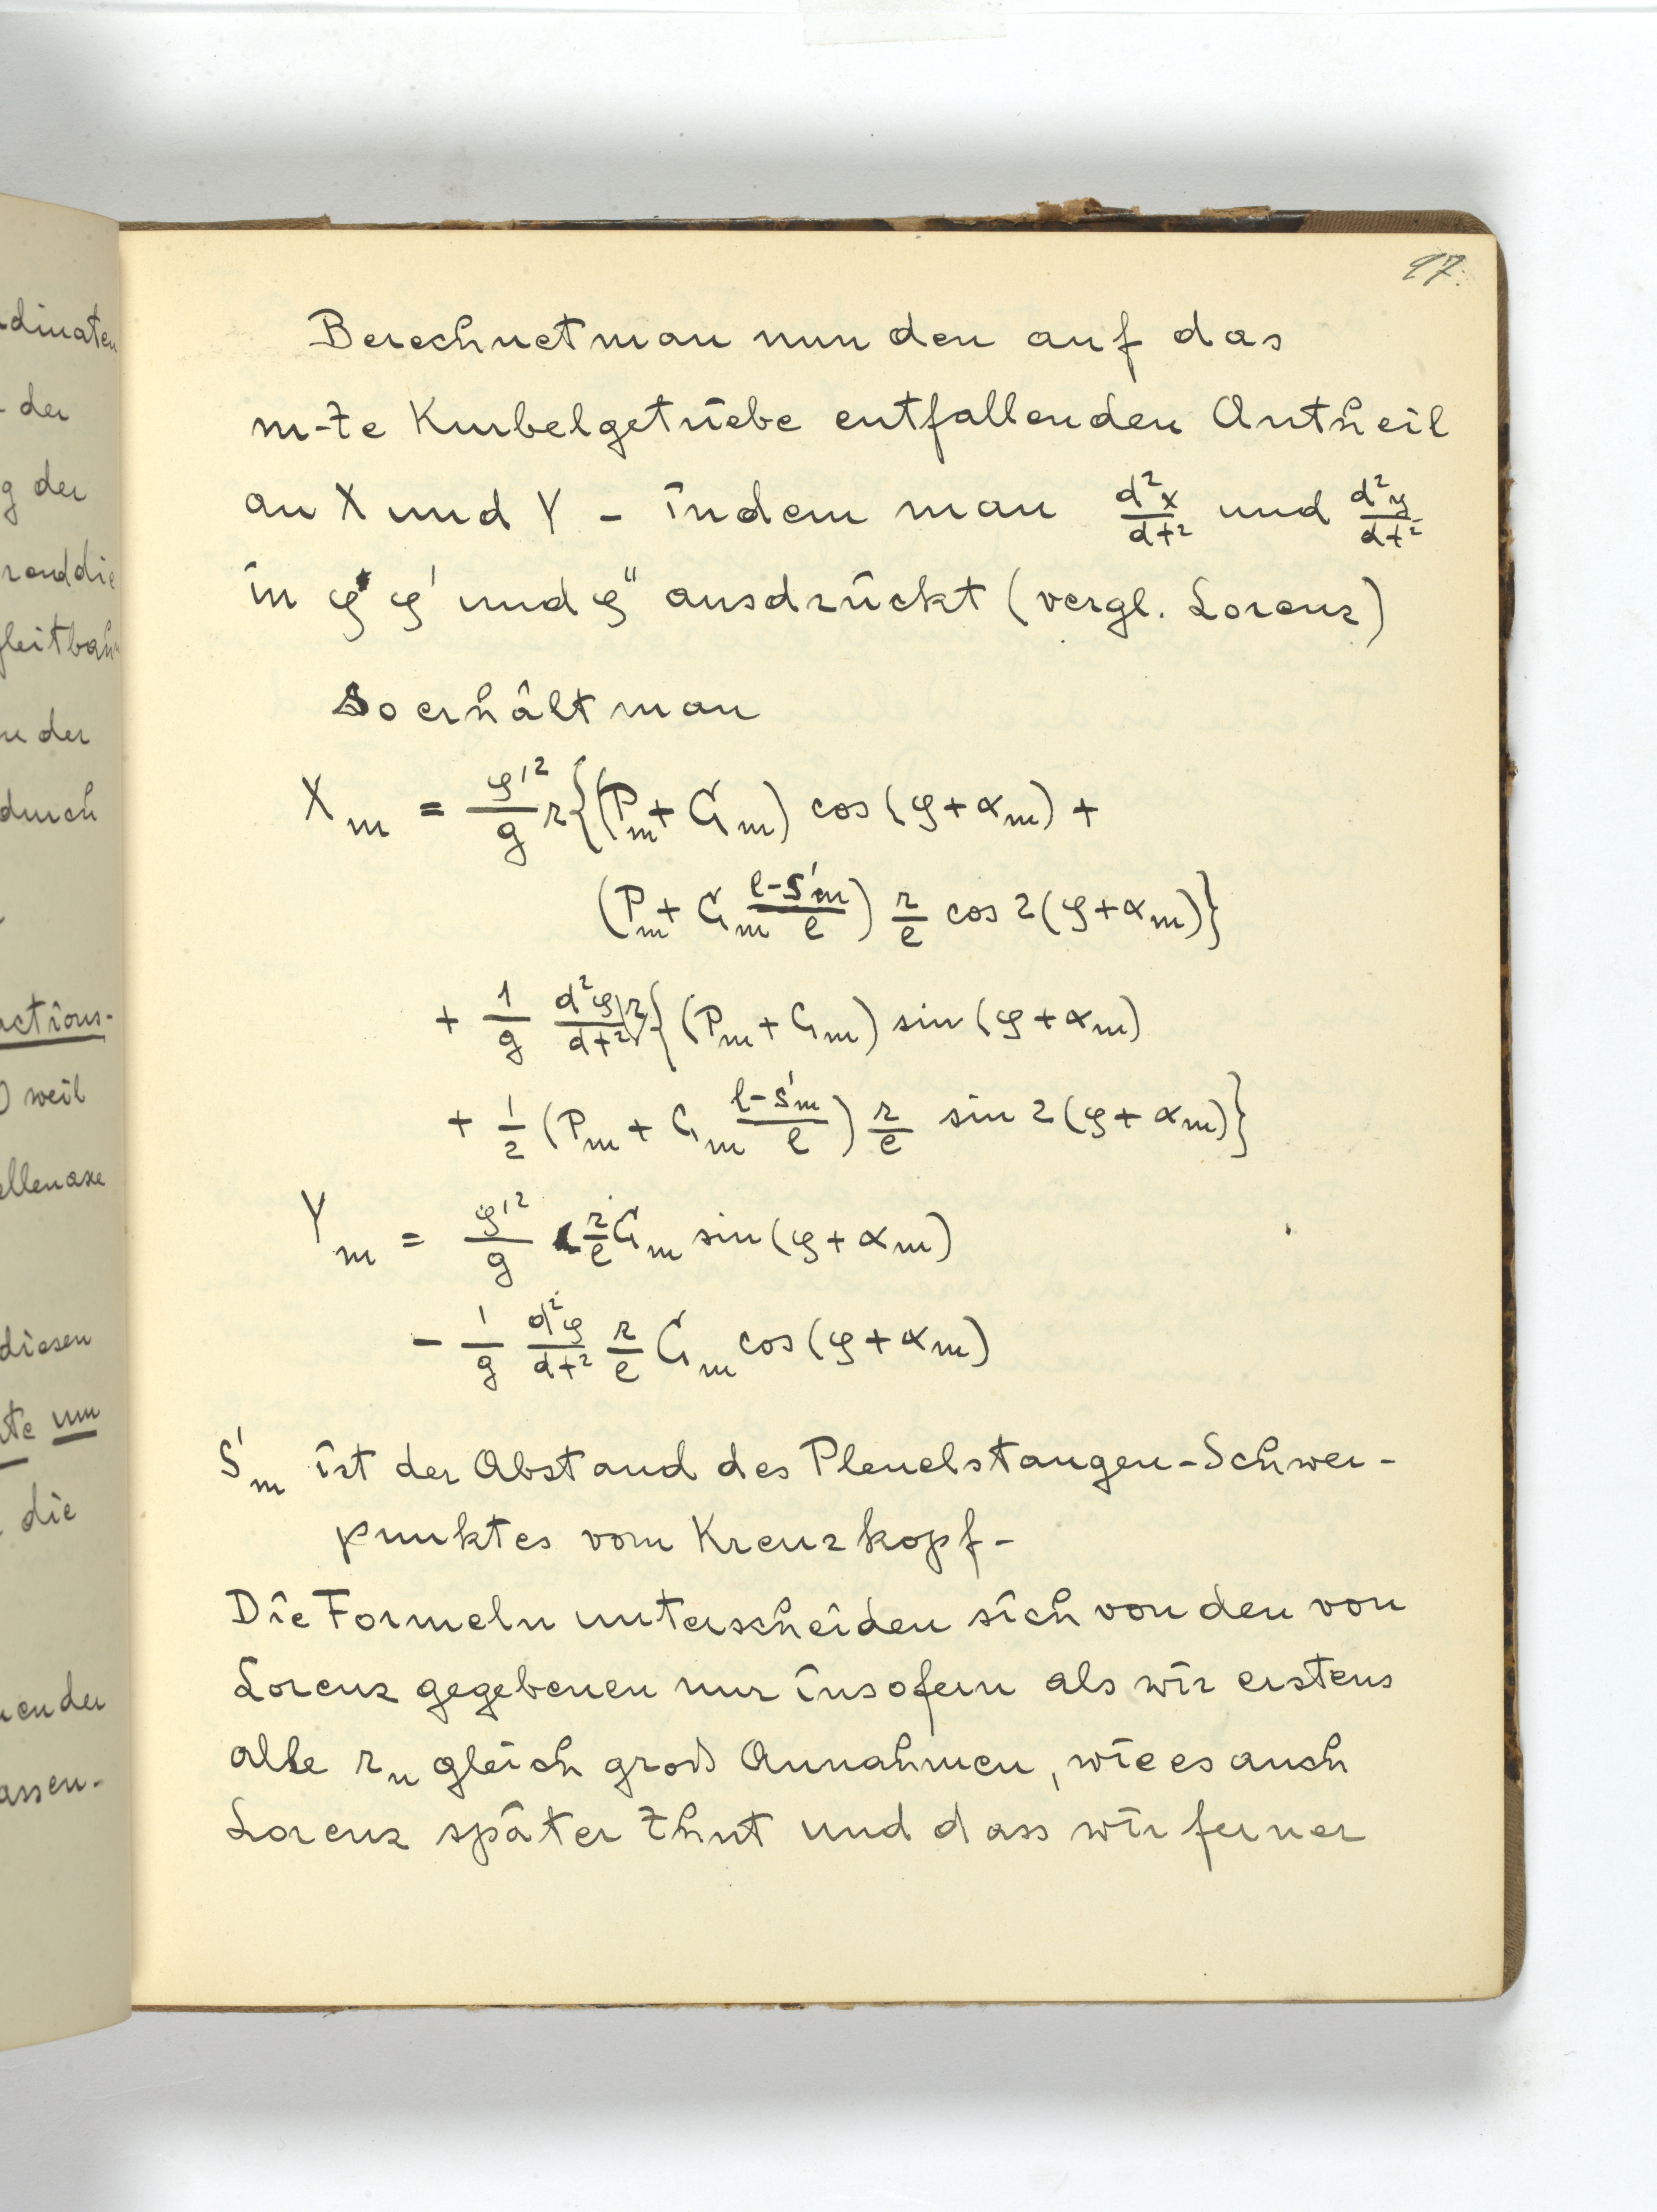 dinaten
- der
g der
rand die
gleitbahn
der
durch
actions-
) weil
ellenaxe
diesen
te um
die
en der
assen-
97.
Berechnet man nun den auf das
m-te Kurbelgetriebe entfallenden Antheil
an X und Y - indem man d²x/dt² und d²y/dt²
in φ φ' und φ" ausdrückt (vergl. Lorenz)
So erhält man
X_m = φ'²/g r{(P_m + G_m) cos (φ + α_m) +
(P_m + G_m (l-S'_m)/l) r/l cos 2(φ + α_m)}
+ 1/g d²φ/dt² r{(P_m + G_m) sin (φ + α_m)
+ 1/2 (P_m + G_m (l-S'_m)/l) r/l sin 2(φ + α_m)}
Y_m = φ'²/g r/l G_m sin (φ + α_m)
- 1/g d²φ/dt² r/l G_m cos (φ + α_m)
S'_m ist der Abstand des Pleuelstangen-Schwer-
punktes vom Kreuzkopf-
Die Formeln unterscheiden sich von den von
Lorenz gegebenen nur insofern als wir erstens
alle r_n gleich groß Annahmen, wie es auch
Lorenz später thut und dass wir ferner